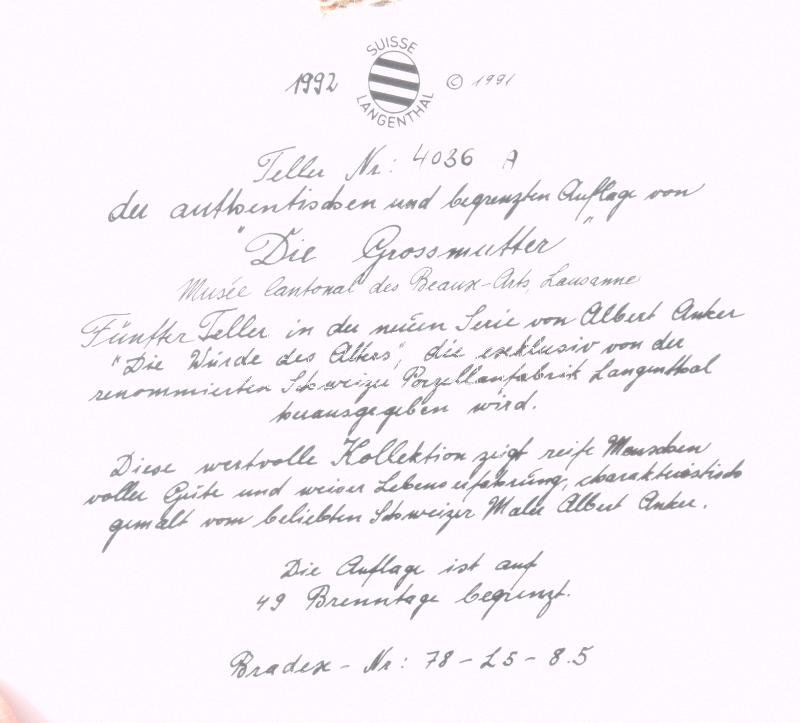 SUISSE
1992 © 1991
LANGENTHAL
Teller Nr: 4036 A
der authentischen und begrenzten Auflage von
"Die Grossmutter"
Musée Cantonal des Beaux-Arts, Lausanne
Fünfter Teller in der neuen Serie von Albert Anker
"Die Würde des Alters", die exklusiv von der
renommierten Schweizer Porzellanfabrik Langenthal
herausgegeben wird.
Diese wertvolle Kollektion zeigt reife Menschen
voller Güte und weiser Lebenserfahrung, charakteristisch
gemalt vom beliebten Schweizer Maler Albert Anker.
Die Auflage ist auf
49 Brenntage begrenzt.
Bradex-Nr: 78-L5-8.5